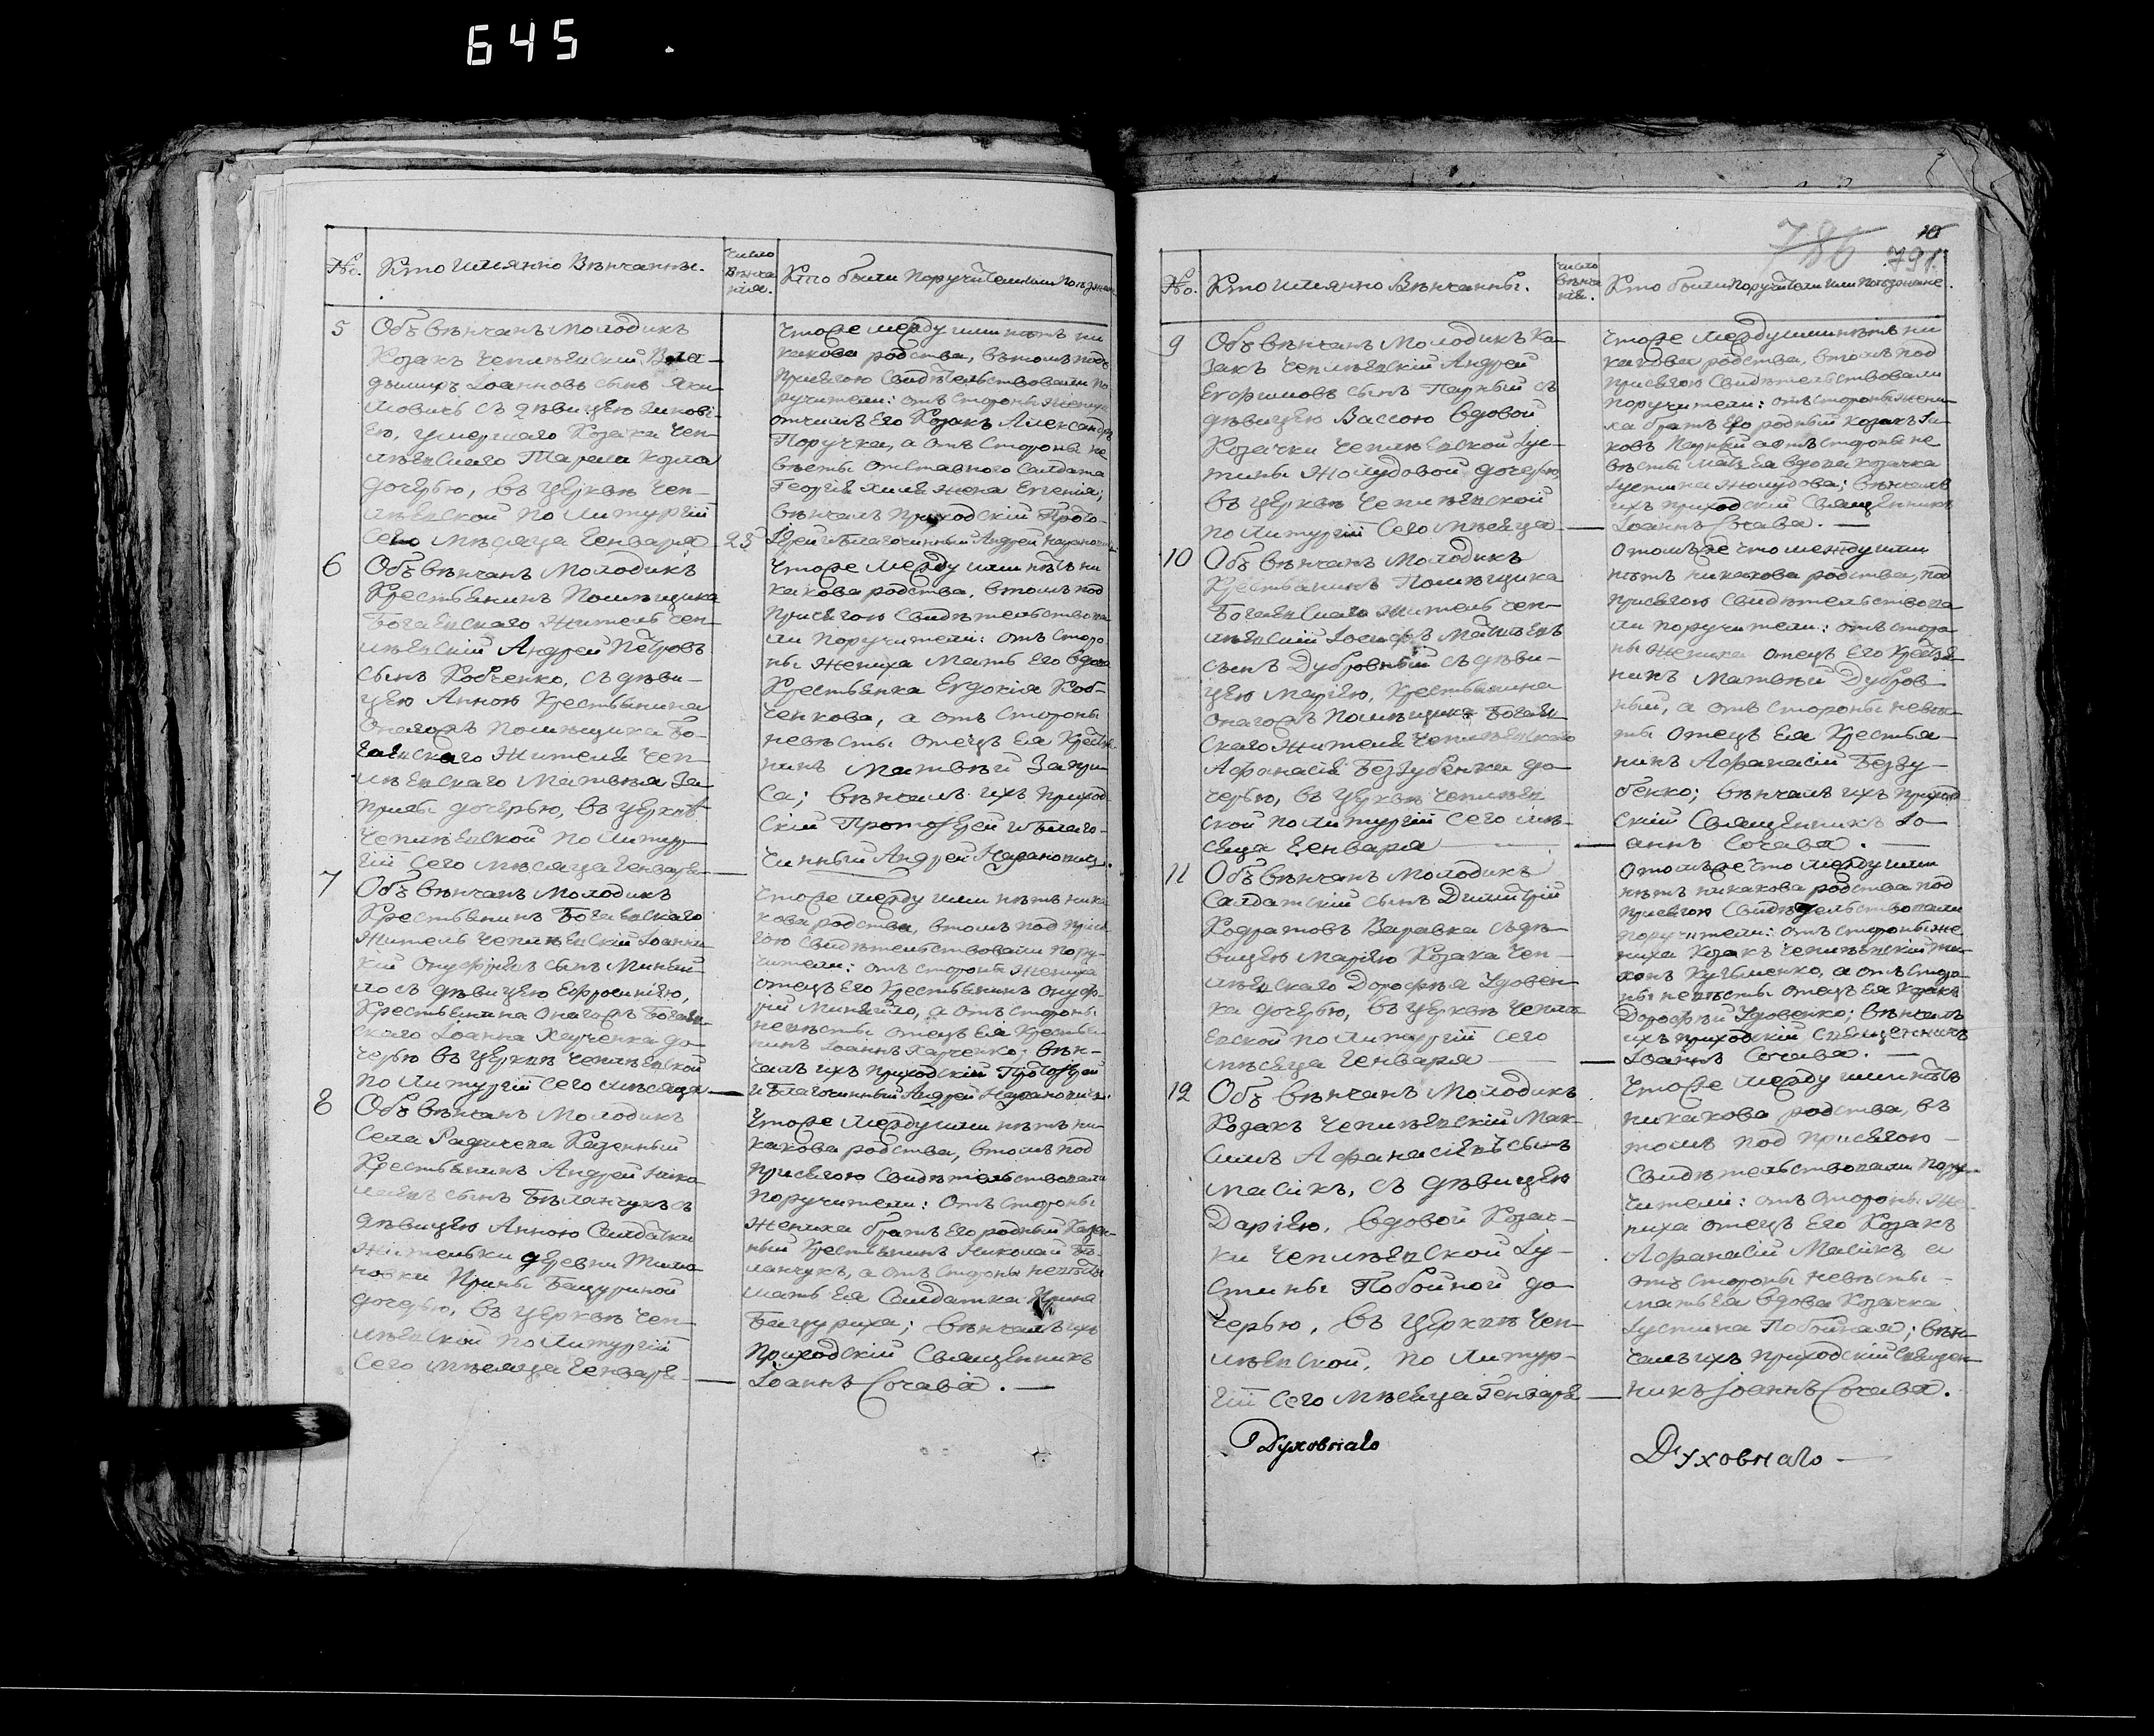 645
№.
Кто имянно Вѣнчанны.
число Вѣнча нія.
Кто были Поручители или Поезжане
5
Объ вѣнчанъ Молодикъ
Козакъ Чеплѣевскій Вла-
дымиръ Іоанновъ сынъ Яки-
мовичь съ дѣвицею
умершаго Козака Чеп-
лѣевскаго
дочерью, въ церквѣ Чеп-
лѣевской по Литургіи
Сего мѣсяца Генваря
25
Чтоже между ими нѣтъ ни
какова родства, въ томъ подъ
присягою Свидѣтельствовали по
ручители: отъ стороны жениха
отчимъ Его Козакъ Александръ
Поручка, а отъ Стороны не
вѣсты отставного Салдата
Георгія жена Евгенія,
вѣнчалъ Приходскій Прото-
Іерей и Благочинный Андрей
6
Объ вѣнчанъ Молодикъ
Крестьянинъ Помѣщика
Богаевскаго Житель Чеп-
лѣевскій Андрей Петровъ
сынъ Кобченко, съ дѣви-
цею Анною Крестьянина
Онагожъ Помѣщика Бо-
гаевскаго Жителя Чеп-
лѣевскаго Матвѣя За
дочерью, въ церквѣ
Чеплѣевской по Литур-
гіи Сего мѣсяца Генваря
Чтоже между ими нѣтъ ни
какова родства, втомъ под
присягою Свидѣтельствова
ли Поручители: отъ сторо
ны жениха Мать его вдова
Крестьянка Евдокія Коб-
ченкова, а отъ Стороны
невѣсты Отецъ Ея Крестья-
нинъ Матвѣй
вѣнчалъ ихъ Приход
скій Протоіерей и Благо-
чинный Андрей
7
Объ вѣнчанъ Молодикъ
Крестьянинъ Богаевскаго
Житель Чеплѣевскій Іоанни-
кій Онуфріевъ сынъ Миняй-
ло съ дѣвицею Ефросиніею,
Крестьянина Онагожъ Богаев-
скаго Іоанна Харченка до-
черью въ церквѣ Чеплѣевской
по Литургіи сего мѣсяца
Чтоже между ими нѣтъ ника
кова родства, втомъ под прися
гою свидѣтельствовали пору-
чители: отъ стороны Жениха
отецъ Его Крестьянинъ Онуф-
рій Миняйло, а отъ стороны
невѣсты отецъ Ея Крестья-
нинъ Іоаннъ Харченко; вѣн-
чалъ ихъ Приходскій Протоіерей
и Благочинный Андрей
8
Объ вѣнчанъ Молодикъ
Села Радичева Казенный
Крестьянинъ Андрей Нико
лаевъ сынъ Биланчукъ съ
дѣвицею Анною Салдатки
Жительки деревни
Ирины Бацуриной
дочерью, въ церквѣ Чеп-
лѣевской по Литургіи
Сего мѣсяца Генваря
Чтоже между ими нѣтъ ни-
какова родства, втомъ под
присягою Свидѣтельствовали
поручители: Отъ стороны
Жениха братъ Его родный Казен-
ный Крестьянинъ Николай Би-
ланчукъ, а отъ Стороны невѣсты
мать Ея Салдатка Ирина
Бацуриха; вѣнчалъ ихъ
Приходскій Священникъ
Іоаннъ Сочава.
786
10
791.
№.
Кто имянно Вѣнчанны.
число вѣнча нія.
Кто были Поручители или Поезжане.
9
Объ вѣнчанъ Молодикъ Ка-
закъ Чеплѣевскій Андрей
Ефимовъ сынъ Парный съ
дѣвицею Вассою вдовой
Козачки Чеплѣевской Іус-
тины Жолудовой дочерью,
въ церквѣ Чеплѣевской
по Литургіи Сего мѣсяца
Чтоже между ими нѣтъ ни
какова родства, втомъ под
присягою Свидѣтельствовали
поручители: отъ стороны жени-
ха братъ Его родный Козакъ Іа-
ковъ Парный а отъ стороны не
вѣсты мать Ея вдова козачка
Іустина Жолудова; вѣнчалъ
ихъ приходскій Священникъ
Іоаннъ Сочава.
10
Объ вѣнчанъ Молодикъ
Крестьянинъ Помѣщика
Богаевскаго Житель Чеп-
лѣевскій Іосифъ Матвѣевъ
сынъ Дубровный съ дѣви-
цею Маріею, Крестьянина
Онагожъ Помѣщика Богаев-
скаго Жителя Чеплѣевскаго
Афанасія Беззубенка до-
черью, въ церквѣ Чеплѣев
ской по Литургіи сего мѣ-
сяца Генваря
Отомъ же что между ими
нѣтъ никакова родства, под
присягою Свидѣтельствова
ли поручители: отъ сторо
ны Жениха отецъ Его Крестья
нинъ Матвѣй Дубров-
ный, а отъ Стороны невѣс-
ты Отецъ Ея Крестья-
нинъ Афанасій Беззу-
бенко; вѣнчалъ ихъ Приход
скій Священникъ Іо-
аннъ Сочава.
11
Объ вѣнчанъ Молодикъ
Салдатскій сынъ Димитрій
Кодратовъ Варавка съ дѣ-
вицею Маріею Козака Чеп-
лѣевскаго Дорофѣя Удовен-
ка дочерью, въ церквѣ Чеплѣ-
евской по Литургіи сего
мѣсяца Генваря
Отомъже что между ими
нѣтъ никакова родства под
присягою Свидѣтельствовали
поручители: отъ стороны же
ниха Козакъ Чеплѣевскій
Кузьменко, а отъ сторо-
ны невѣсты отецъ Ея Козакъ
Дорофѣй Удовенко; вѣнчалъ
ихъ приходскій Священникъ
Іоаннъ Сочава.
12
Объ вѣнчанъ Молодикъ
Козакъ Чеплѣевскій Мак-
симъ Афанасіевъ сынъ
Масикъ, съ дѣвицею
Даріею, вдовой Козач-
ки Чеплѣевской Іу-
стины Побойной до
черью, въ церквѣ Чеп-
лѣевской, по Литур-
гіи Сего мѣсяца Генваря
Чтоже между ими нѣтъ
никакова родства, въ
томъ под присягою
Свидѣтельствовали пору-
чители: отъ стороны Же-
ниха отецъ Его Козакъ
Афанасій Масикъ, а
отъ стороны невѣсты
мать Ея вдова Козачка
Іустина Побойная; вѣн-
чалъ ихъ приходскій священ-
никъ Іоаннъ Сочава.
Духовнаго
Духовнаго